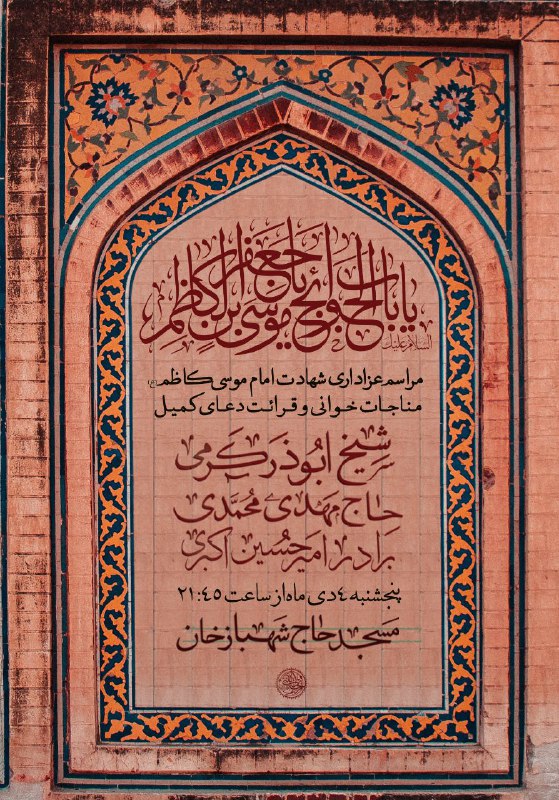 السلام علیک
یا باب الحوائج یا موسی بن جعفر الکاظم
مراسم عزاداری شهادت امام موسی کاظم (ع)
مناجات خوانی و قرائت دعای کمیل
شیخ ابوذر کرمی
حاج مهدی محمدی
برادر امیرحسین اکبری
پنجشنبه ٤ دی ماه از ساعت ٢١:٤٥
مسجد حاج شهبازخان